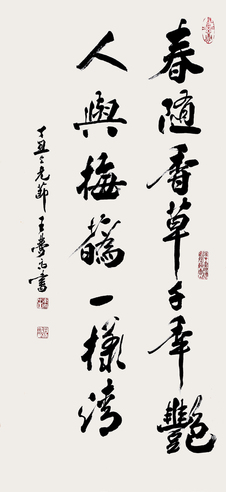 春隨香草千年艷
人與梅蘤一樣清
丁丑元節王夢書